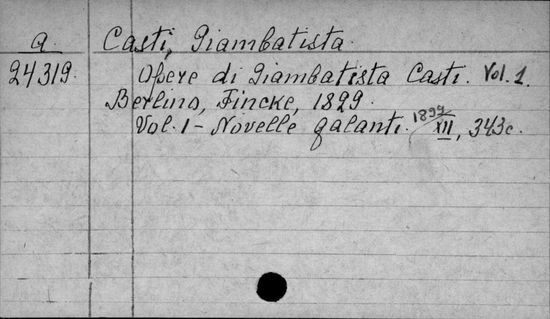 a. Casti, Giambatista.
24319. Opere di Giambatista Casti. Vol. 1.
Berlino, Fincke, 1829.
Vol. 1 - Novelle galanti. 1829 XII, 343c.